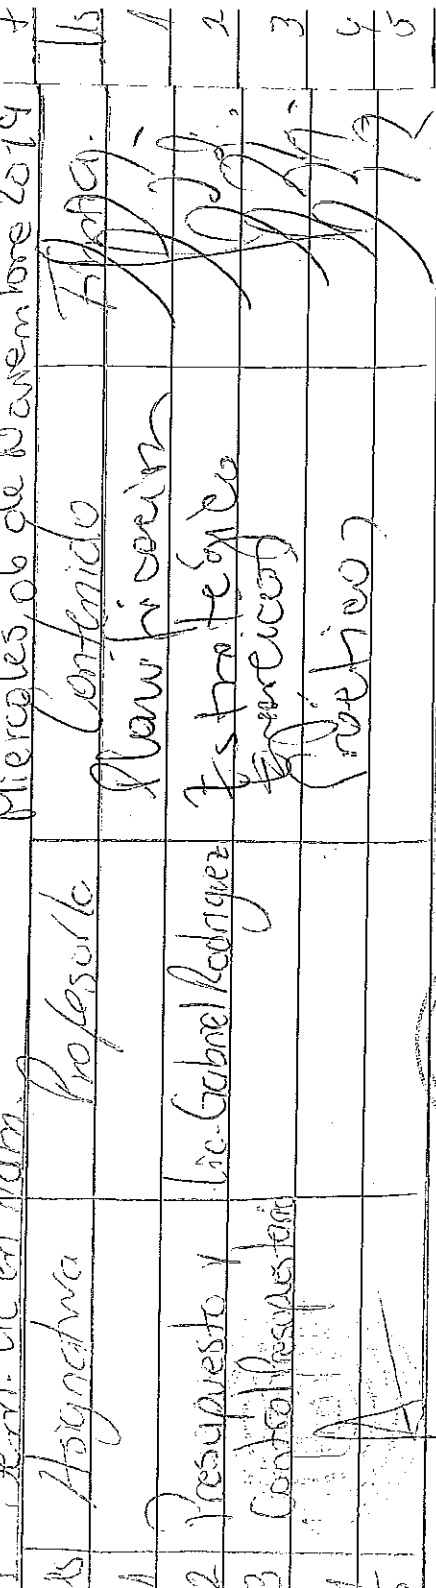 Lic. en Adm. Miercoles 06 de Noviembre 2019
Hs Asignatura Profesor/a Contenido Firma. Hs
1 Planificacion 1
2 Presupuesto y Lic. Gabriel Rodriguez Estratégica 2
3 Control Presupuestario 3
4 Prácticos 4
5 5